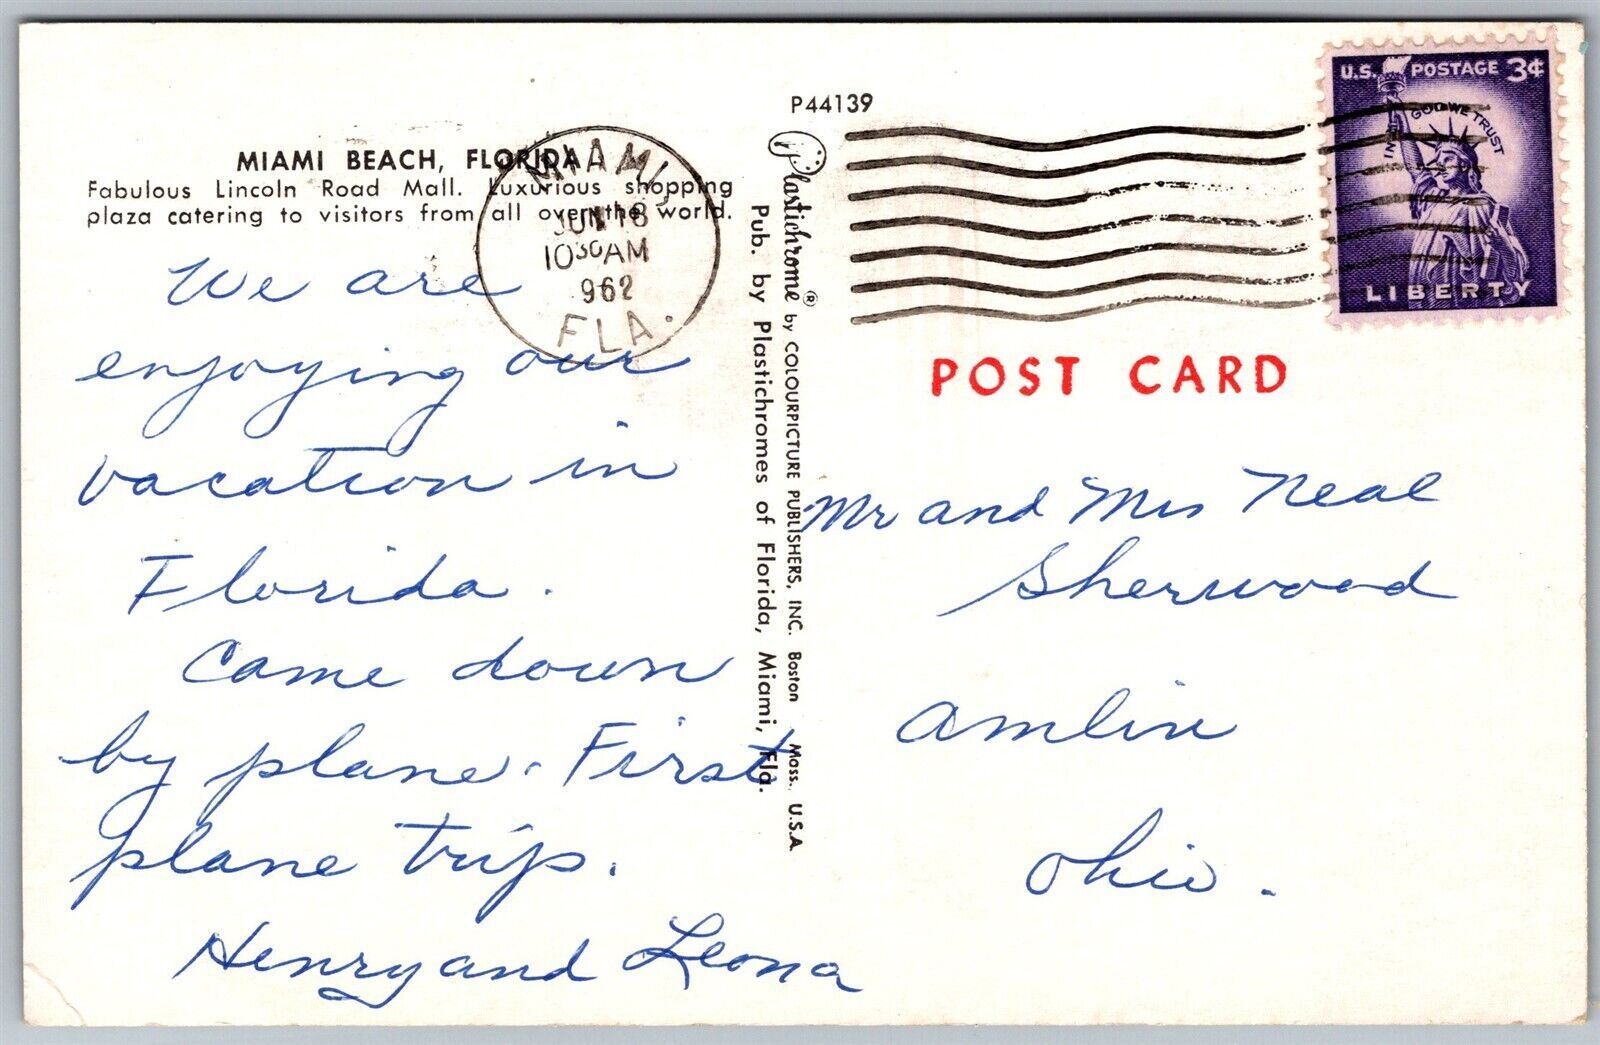 P44139
MIAMI BEACH, FLORIDA
Fabulous Lincoln Road Mall. Luxurious shopping
plaza catering to visitors from all over the world.
MIAMI,
JUN 18
10 30 AM
962
FLA.
U.S. POSTAGE 3¢
IN GOD WE TRUST
LIBERTY
POST CARD
We are
enjoying our
vacation in
Florida.
Came down
by plane. First
plane trip.
Henry and Leona
Plastichrome® by COLOURPICTURE PUBLISHERS, INC. Boston Mass. U.S.A.
Pub. by Plastichromes of Florida, Miami, Fla.
Mr and Mrs Neal
Sherwood
Amlin
Ohio.